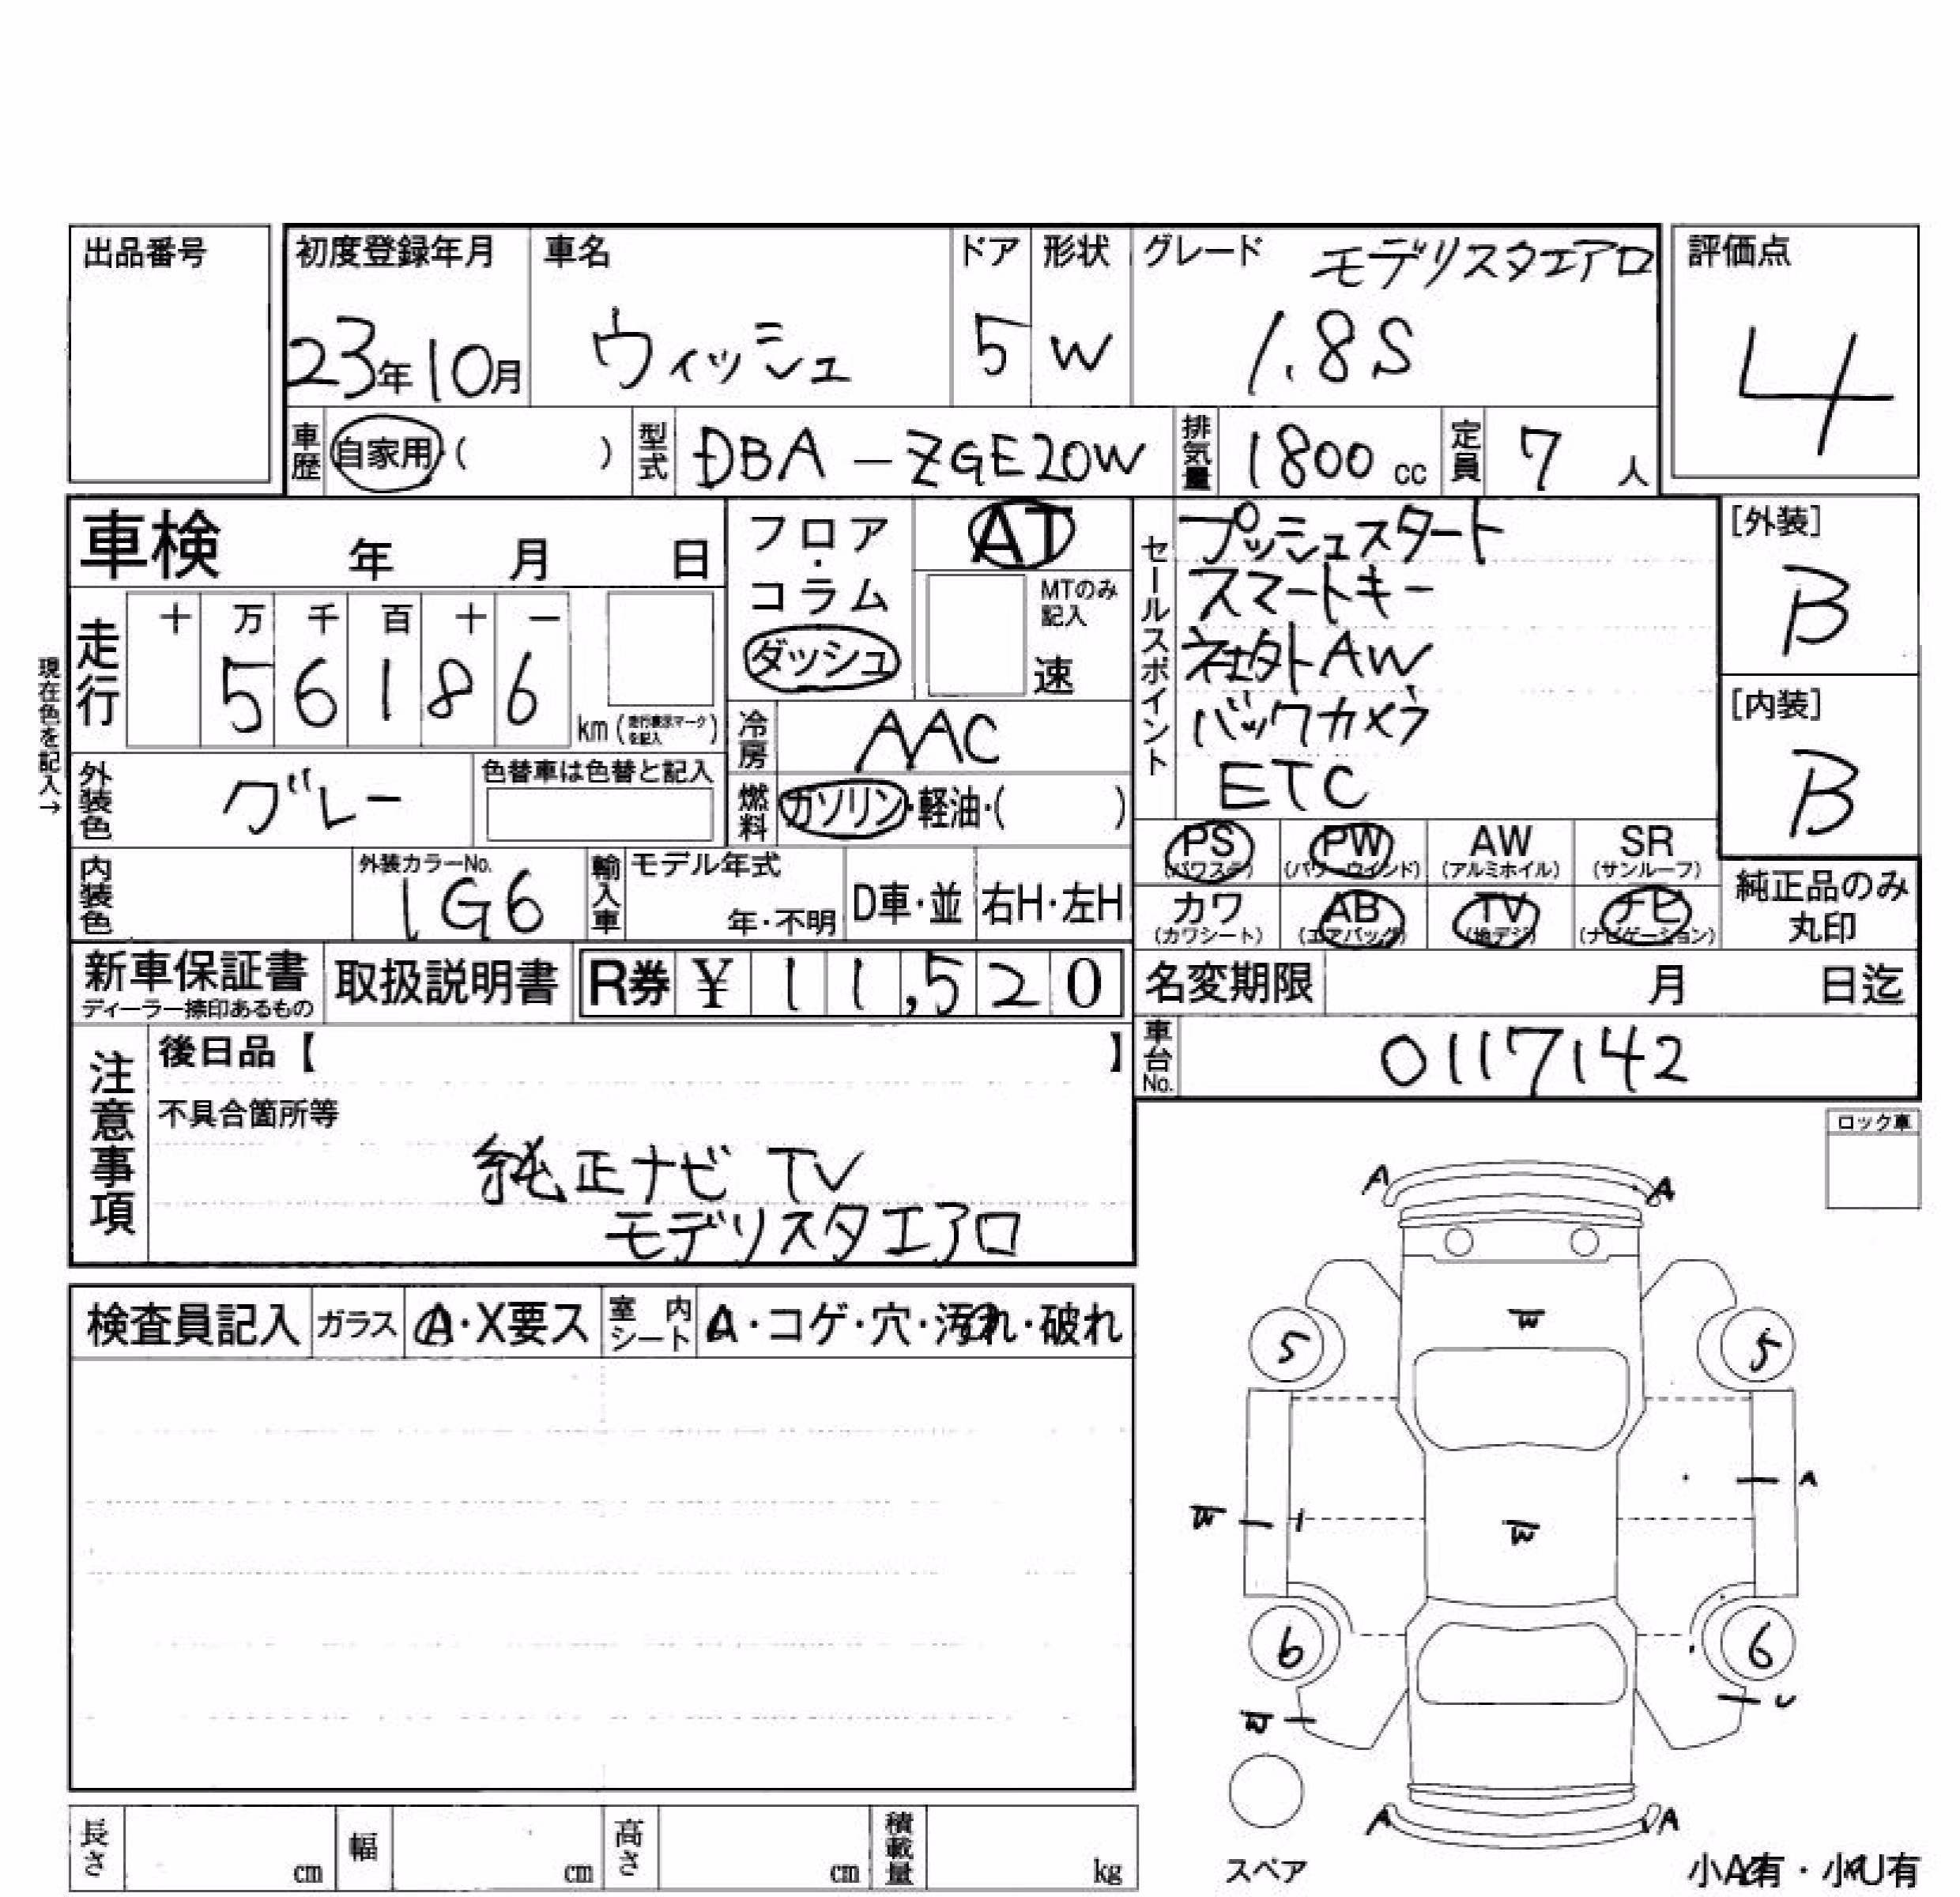 出品番号
初度登録年月 車名 ドア 形状 グレード モデリスタエアロ 評価点
23年10月 ウィッシュ 5 W 1.8S 4
車歴 自家用・( ) 型式 DBA-ZGE20W 排気量 1800cc 定員 7人
車検 年 月 日
フロア・コラム ダッシュ
AT
MTのみ記入
速
セールスポイント
プッシュスタート
スマートキー
社外AW
バックカメラ
ETC
[外装]
B
[内装]
B
現在色を記入→
走行 十 万 千 百 十 一
56186
km(走行表示マークを記入)
冷房 AAC
燃料 ガソリン・軽油・( )
外装色 グレー 色替車は色替と記入
内装色 外装カラーNo. 1G6
輸入車 モデル年式 年・不明 D車・並 右H・左H
PS (パワステ) PW (パワーウインド) AW (アルミホイル) SR (サンルーフ)
カワ (カワシート) AB (エアバッグ) TV (地デジ) ナビ (ナビゲーション)
純正品のみ丸印
新車保証書 ディーラー捺印あるもの 取扱説明書 R券 ¥11,520
名変期限 月 日迄
車台No. 0117142
注意事項
後日品【 】
不具合箇所等
純正ナビ TV
モデリスタエアロ
ロック車
検査員記入 ガラス A・X要ス 室内シート A・コゲ・穴・汚れ・破れ
A A
W
5 5
A
W W
6 6
W U
A A
スペア
小A有・小U有
長さ cm 幅 cm 高さ cm 積載量 kg